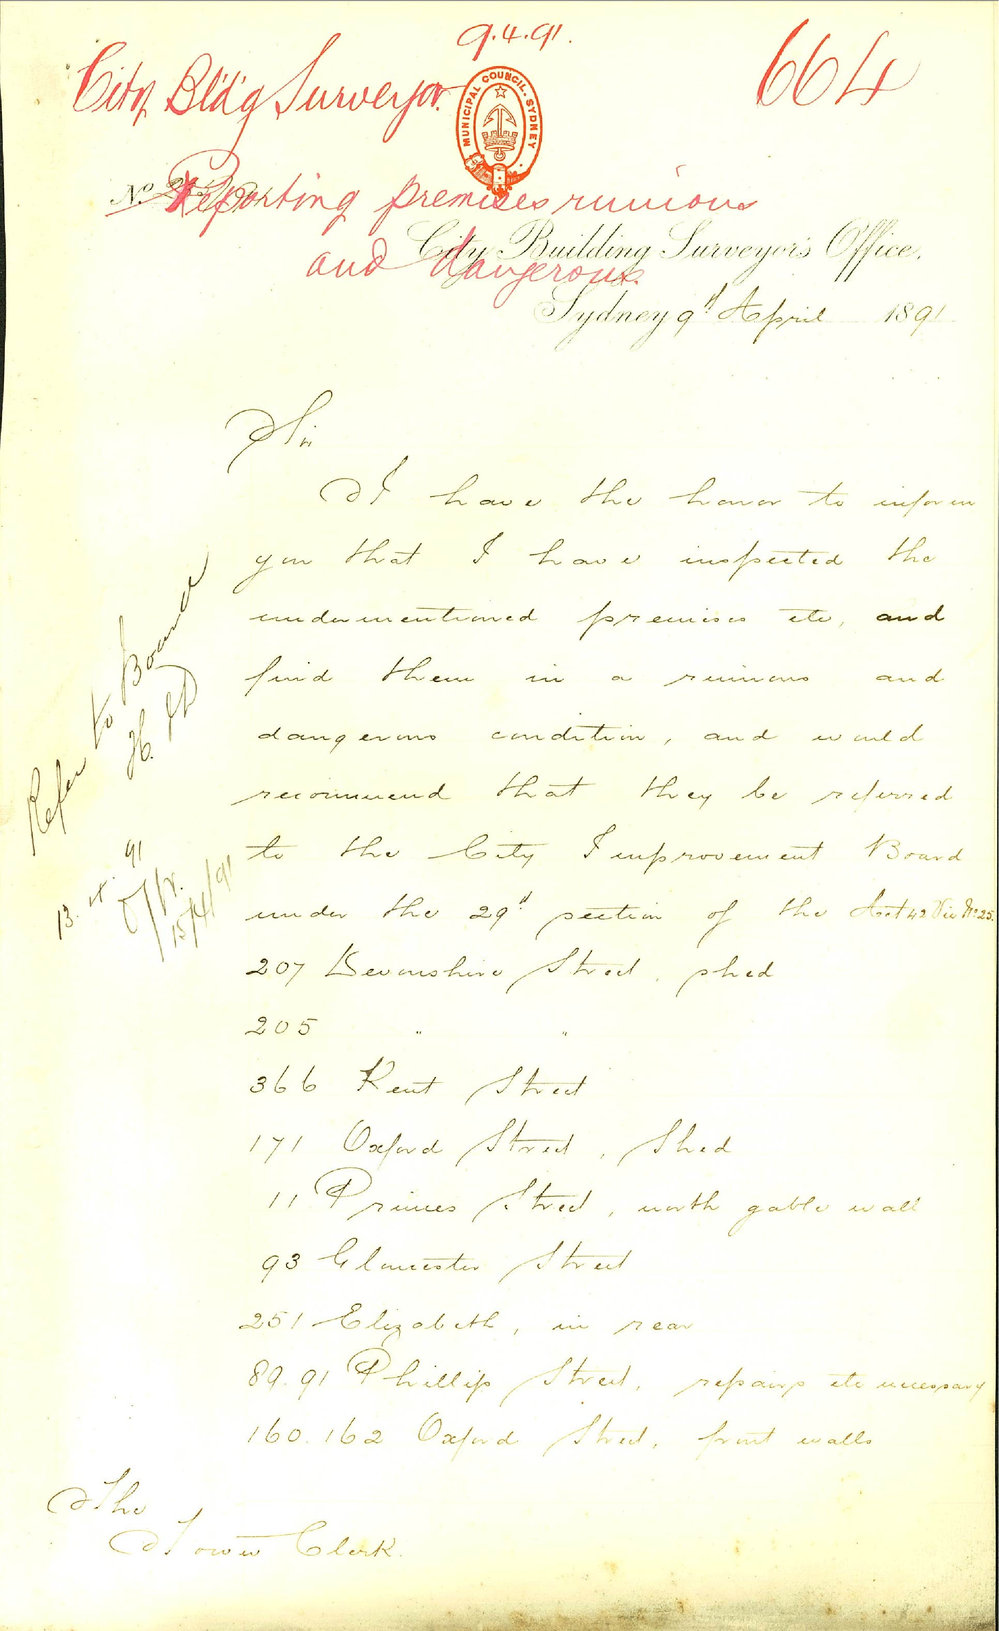 9.4.91.
664
City Bldg Surveyor.
MUNICIPAL COUNCIL. SYDNEY
No.
Reporting premises ruinous
and dangerous.
City Building Surveyor's Office,
Sydney 9th April 1891
Sir
I have the honor to inform
you that I have inspected the
undermentioned premises etc, and
find them in a ruinous and
dangerous condition, and would
recommend that they be referred
to the City Improvement Board
under the 29th section of the Act 42 Vic No 25.
207 Devonshire Street, shed
205 " "
366 Kent Street
171 Oxford Street, Shed
11 Princes Street, north gable wall
93 Gloucester Street
251 Elizabeth, in rear
89.91 Phillip Street, repairs etc necessary
160.162 Oxford Street, front walls
The
Town Clerk.
Refer to Board
13.4.91
15/4/91